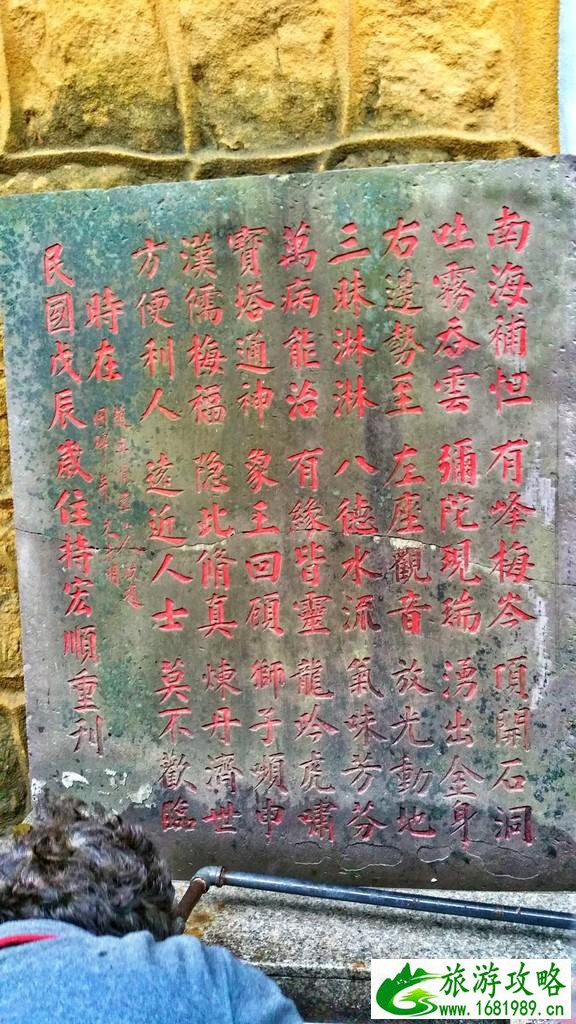 南海補怛 有峰梅岑 頂開石洞
吐霧吞雲 彌陀現瑞 湧出金身
右邊勢至 左座觀音 放光動地
三昧淋淋 八德水流 氣味芳芬
萬病能治 有緣皆靈 龍吟虎嘯
寶塔通神 象王回頋 獅子嚬申
漢儒梅福 隐此脩真 煉丹濟世
方便利人 遠近人士 莫不歡臨
時在
民國戊辰歲住持宏順重刊
旅游攻略
www.1681989.cn